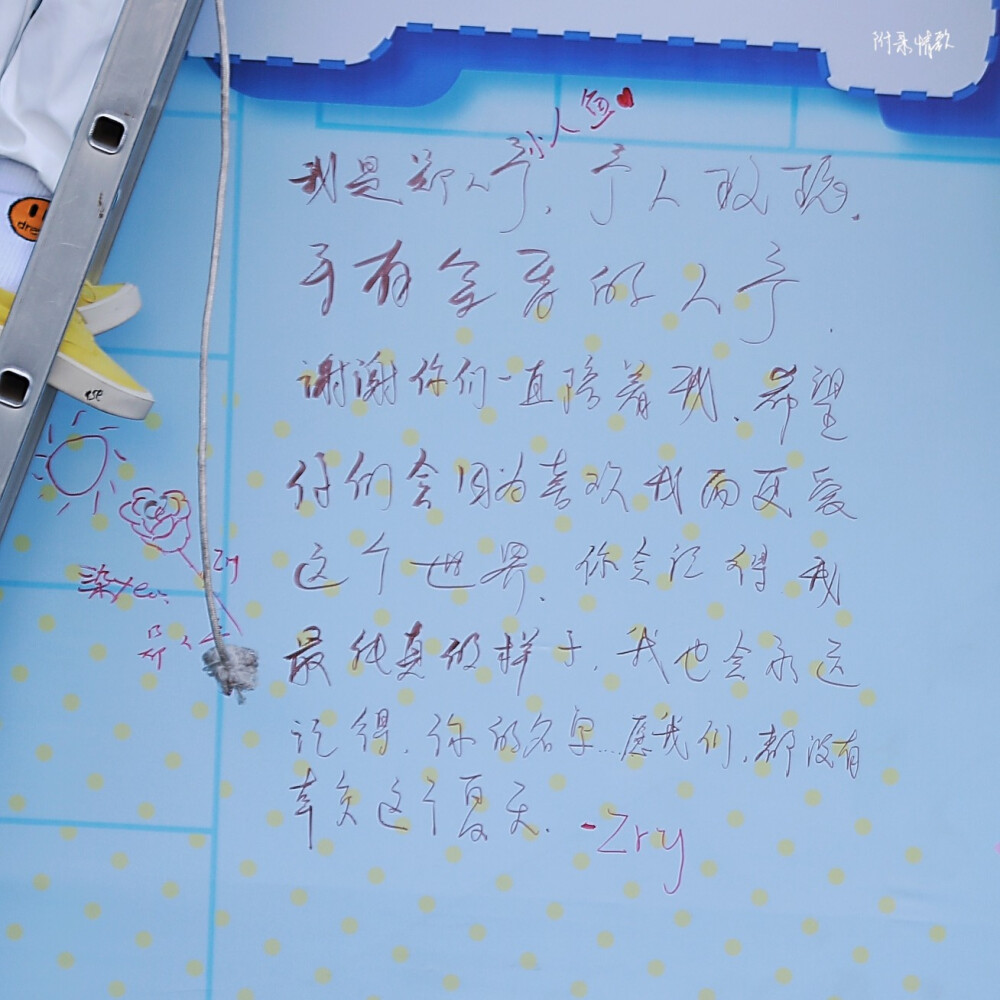 附录情歌
我是郑人予、予人玫瑰、
手有余香的人予.
谢谢你们一直陪着我、希望
你们会因为喜欢我而更爱
这个世界、你会记得我
最纯真的样子、我也会永远
记得、你的名字...愿我们、都没有
辜负这个夏天. -Zry